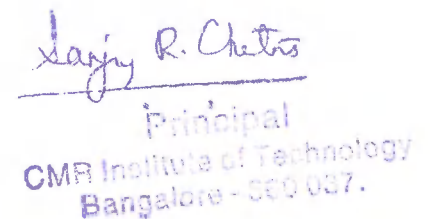 Sanjay R. Chitnis
Principal
CMR Institute of Technology
Bangalore - 560 037.